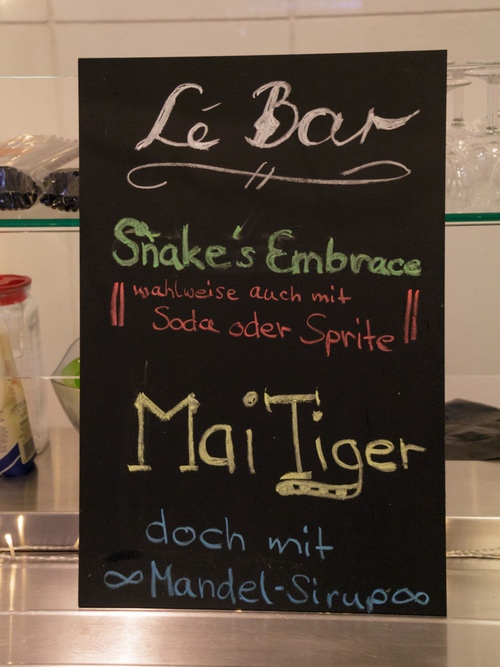 Lé Bar
Snake's Embrace
wahlweise auch mit
Soda oder Sprite
Mai Tiger
doch mit
∞Mandel-Sirup∞